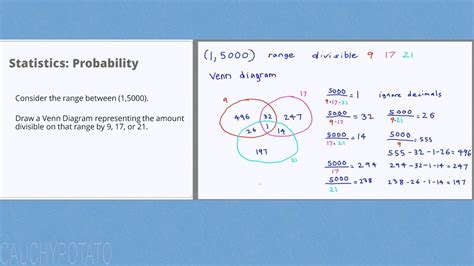 Statistics: Probability
Consider the range between (1,5000).
Draw a Venn Diagram representing the amount
divisible on that range by 9, 17, or 21.
(1,5000) range divisible 9 17 21
Venn diagram
9
17
496
32
247
26
1
14
197
21
5000/9·17·21 = 1 ignore decimals
5000/9·17 = 32 5000/9·21 = 26
5000/17·21 = 14 5000/9 = 555
555-32-1-26=496
5000/17 = 294 294-32-1-14=247
5000/21 = 238 238-26-1-14=197
CAUCHYPOTATO